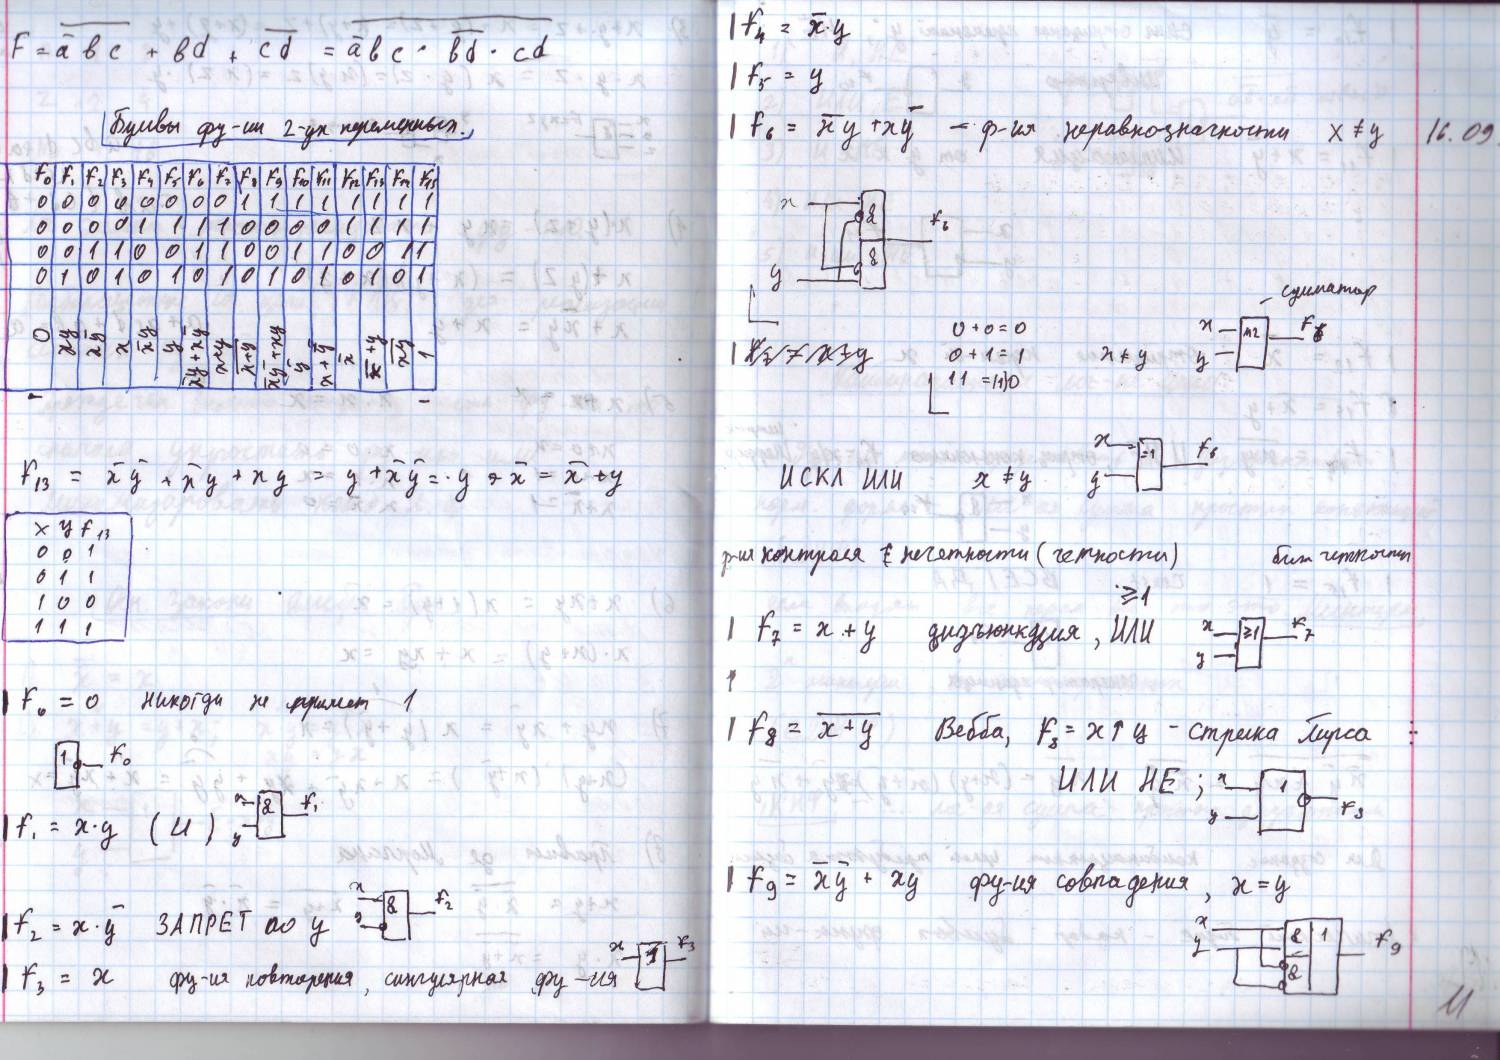 F = a̅ b c + bd + c d̅ = a̅ b c · b̅d̅ · cd
Булевы фу-ии 2-ух переменных.
F0 F1 F2 F3 F4 F5 F6 F7 F8 F9 F10 F11 F12 F13 F14 F15
0 0 0 0 0 0 0 0 1 1 1 1 1 1 1 1
0 0 0 0 1 1 1 1 0 0 0 0 1 1 1 1
0 0 1 1 0 0 1 1 0 0 1 1 0 0 1 1
0 1 0 1 0 1 0 1 0 1 0 1 0 1 0 1
0 xy xy̅ x x̅y y x̅y+xy̅ x+y x̅+̅y̅ x̅y̅+xy y̅ x+y̅ x̅ x̅+y x̅y̅ 1
F13 = x̅ y̅ + x̅ y + x y = y + x̅ y̅ = y + x̅ = x̅ + y
x y F13
0 0 1
0 1 1
1 0 0
1 1 1
F0 = 0 никогда не примет 1
1 F0
F1 = x·y (И) x y & F1
F2 = x·y̅ ЗАПРЕТ по y x & F2
F3 = x фу-ия повторения, сингулярная фу-ия x 1 F3
F4 = x̅·y
F5 = y
F6 = x̅y + xy̅ – ф-ия неравнозначности x ≠ y 16.09
x y & & F6
сумматор
0 + 0 = 0
0 + 1 = 1 x ≠ y x y m2 F6
11 = (1)0
ИСКЛ ИЛИ x ≠ y x y =1 F6
ф-ия контроля нечетности (четности) бит четности
≥1
F7 = x + y дизъюнкция, ИЛИ x y ≥1 F7
F8 = x̅+̅y̅ Вебба, F8 = x↑y – стрелка Пирса
ИЛИ НЕ; x y 1 F8
F9 = x̅ y̅ + xy фу-ия совпадения, x = y
x y & & 1 F9
11